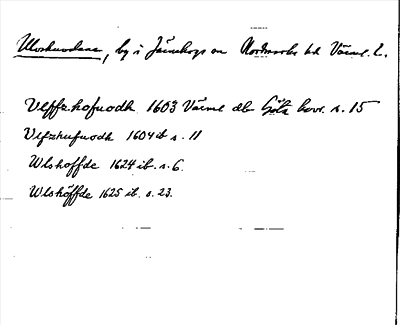 Ulvshuvudena, by i Järnskogs sn Nordmarks hd Värml. l.
Vlffzhofuodh 1603 Värml dlr Götz bevr. s. 15
Vlfzhufuodh 1604 ib s. 11
Wlshoffde 1624 ib. s. 6.
Wlshöffde 1625 ib. s. 23.